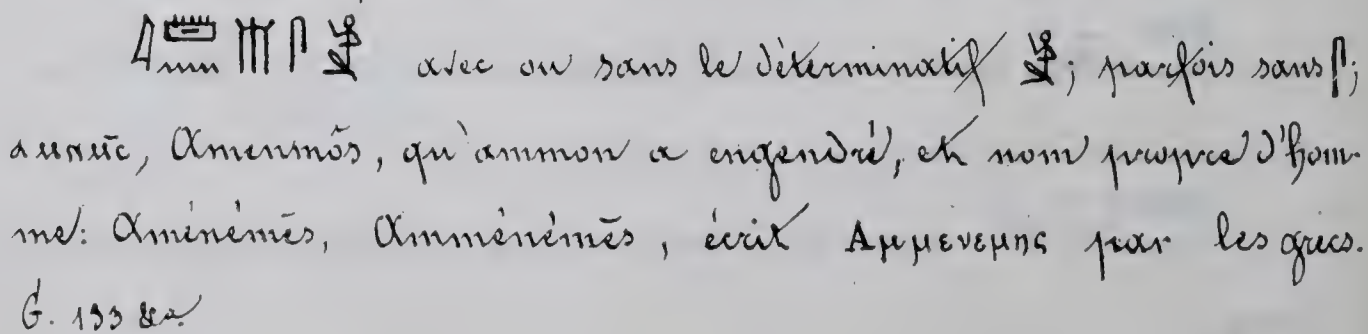 𓇋𓏠𓈖𓄟𓋴 avec ou sans le déterminatif ; parfois sans 𓋴;
ⲁⲙⲛⲙⲥ, Amenmōs, qu'ammon a engendré, et nom propre d'hom-
me: Aménémēs, Amménémēs, écrit Αμμενεμης par les grecs.
G. 193 &a.